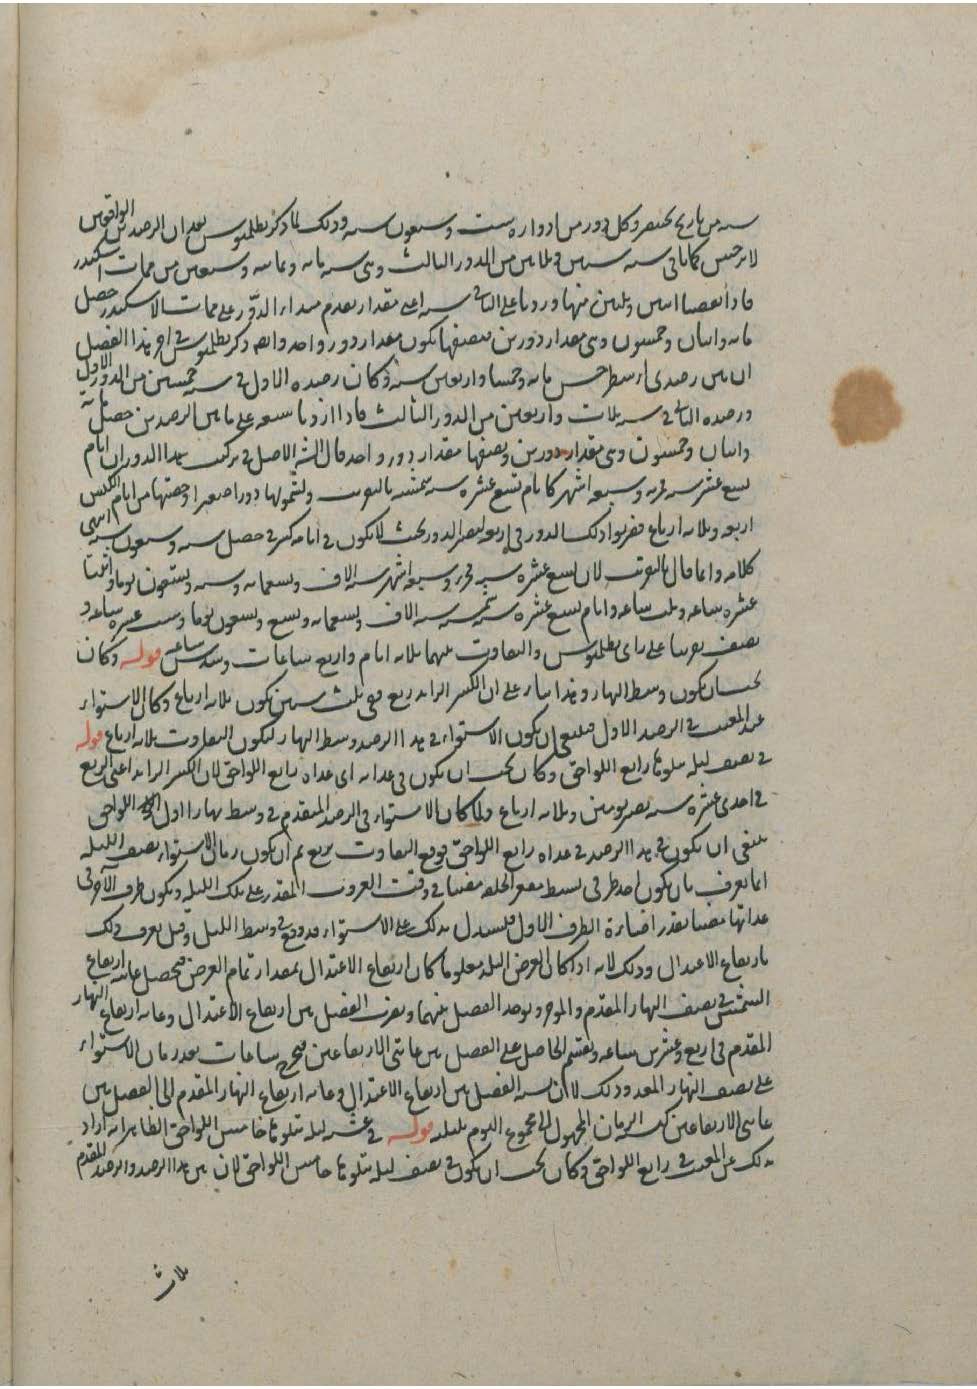 سنه من تاريخ بختنصر وكل دور من ادواره ست وسبعون سنه وذلك لما ذكر بطلميوس بعد ان الرصد الواقع من
لابرخس كما ياتى سنه وثلاثين من الدور الثالث وهى سنه مايه وثمانيه وسبعين من ممات اسكندر
فاذا نقصنا اثنين وثلثين منها وزدنا على الباقى سنه اعنى مقدار تقدم مبداء الدور على ممات الاسكندر حصل
مايه واثنان وخمسون وهى مقدار دورين فنصفها يكون مقدار دور واحد وايضا ذكر بطلميوس فى اخر هذا الفصل
ان بين رصدى ارسطرخس مايه وخمسا واربعين سنه وكان رصده الاول فى سنه خمسين من الدور الاول
ورصده الثانى فى سنه ثلاث واربعين من الدور الثالث فاذا زدنا سبعه على ما بين الرصدين حصل مايه
واثنان وخمسون وهى مقدار دورين ونصفها مقدار دور واحد قال الشه الاصل فى تركيب هذا الدور ان ايام
تسع عشره سنه قمريه وسبعه اشهر كايام تسع عشره سنه شمسيه بالتقريب ولنسمها دورا صغيرا وحصتها من ايام الكبس
اربعه وثلاثه ارباع فضربوا ذلك الدور فى اربعه ليصير الدور بحيث لا يكون فى ايامه كسر فحصل سته وسبعون سنه انتهى
كلامه وانما قال بالتقريب لان تسع عشره سنه قمريه وسبعه اشهر سته الاف وتسعمايه وسته وثلثون يوما واثنتا
عشره ساعه وثلث ساعه وايام تسع عشره سنه شمسيه سته الاف وتسعمايه وتسع وثلثون يوما وست عشره ساعه و
نصف تقريبا على راى بطلميوس والتفاوت بينهما ثلاثه ايام واربع ساعات وسدس ساعه قوله وكان
يجب ان يكون وسط النهار وهذا بناء على ان الكسر الزايد ربع ففى ثلث سنين يكون ثلاثه ارباع وكان الاستواء
عند المغيب فى الرصد الاول فينبغى ان يكون الاستواء فى هذا الرصد وسط النهار ليكون التفاوت ثلاثه ارباع قوله
فى نصف ليله يتلوها رابع اللواحق وكان يجب ان يكون فى غداته اى غداه رابع اللواحق لان الكسر الزايد اعنى الربع
فى احدى عشره سنه يصير يومين وثلاثه ارباع ولما كان الاستواء فى الرصد المقدم فى وسط نهار اول اللواحق
ينبغى ان يكون فى هذا الرصد فى غداه رابع اللواحق فوقع التفاوت بربع ثم ان كون زمان الاستواء نصف الليله
انما يعرف بان يكون احد طرفى بسيط مقعر الحلقه مضيا فى وقت الغروب المقدم على تلك الليله ويكون طرف الاخر فى
غداتها مضيا بقدر اضاءة الطرف الاول فيستدل بذلك على الاستواء قد وقع فى وسط الليل وقيل يعرف ذلك
بارتفاع الاعتدال وذلك لانه اذا كان العرض البلد معلوما كان ارتفاع الاعتدال بمقدار تمام العرض فيحصل غايه ارتفاع
الشمس فى نصف النهار المقدم والموخر ويوخذ الفضل بينهما ويضرب الفضل بين ارتفاع الاعتدال وغايه ارتفاع النهار
المقدم فى اربع وعشرين ساعه ويقسم الحاصل على الفضل بين غايتى الارتفاعين فيخرج ساعات بعد زمان الاستواء
على نصف النهار المقدم وذلك لان نسبه الفضل بين ارتفاع الاعتدال وغايه ارتفاع النهار المقدم الى الفضل بين
غايتى الارتفاعين كنسبه الزمان المجهول الى مجموع اليوم بليلته قوله فى عشيه ليله يتلوها خامس اللواحق الظاهر انه اراد
بذلك عن المغيب فى رابع اللواحق وكان يجب ان يكون فى نصف ليله يتلوها خامس اللواحق لان بين هذا الرصد والرصد المقدم
ثلاث